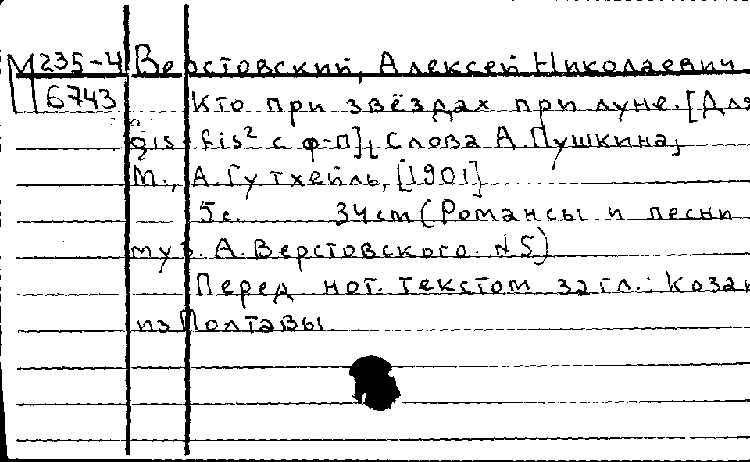 М 235-4 Верстовский, Алексей Николаевич
6743 Кто при звёздах при луне. [Для
gis-fis² с ф-п]. Слова А. Пушкина,
М., А. Гутхейль, [1901]
5с. 34cm (Романсы и песни
муз. А. Верстовского. №5)
Перед нот. текстом загл.: Козак
из Полтавы